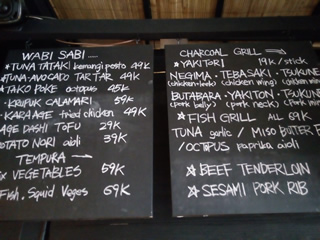 WABI SABI
*TUNA TATAKI kemangi pesto 49K
*TUNA AVOCADO TARTAR 49K
*TAKO POKE octopus 45K
*KRUPUK CALAMARI 59K
*KARAAGE fried chicken 49K
AGE DASHI TOFU 29K
POTATO NORI aioli 39K
TEMPURA
VEGETABLES 59K
Fish. Squid Veges 69K
CHARCOAL GRILL
*YAKITORI 19K/stick
NEGIMA. TEBASAKI. TSUKUNE
(chicken-leek) (chicken wing) (chicken
BUTABARA. YAKITON. TSUKUNE
(pork belly) (pork neck) (pork
*FISH GRILL ALL 69K
TUNA garlic / MISO BUTTER
/OCTOPUS paprika aioli
*BEEF TENDERLOIN
*SESAMI PORK RIB